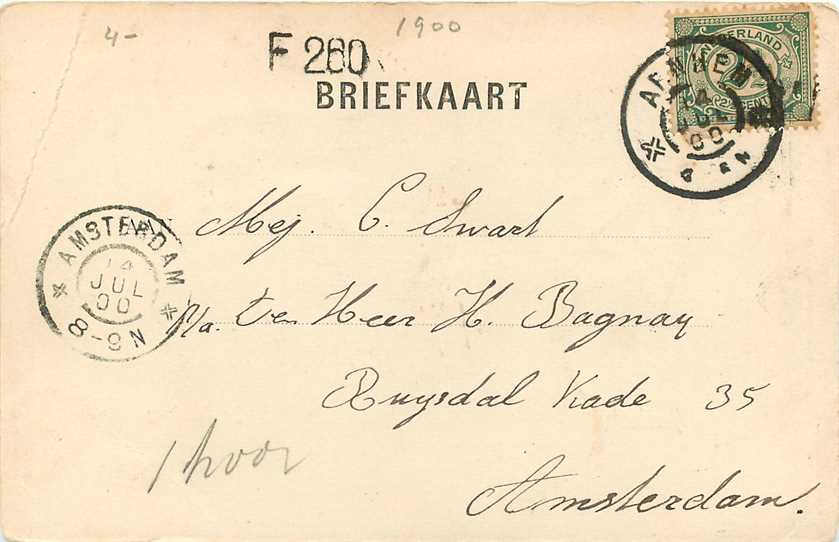 4- 1900
F 260
BRIEFKAART
NEDERLAND
2½ CENT
ARNHEM
14
JUL
00
AMSTERDAM
14
JUL
00
8-9 N
Mej. C. Swart
p/a. den Heer H. Bagnay
Ruysdal Kade 35
Amsterdam.